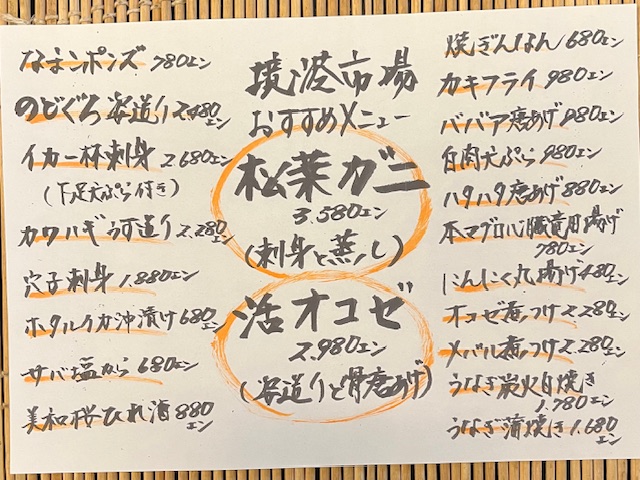 なまこポンズ 780エン
のどぐろ姿造り 2,480エン
イカ一杯刺身 2,680エン
(下足天ぷら付き)
カワハギうす造り 2,280エン
穴子刺身 1,880エン
ホタルイカ沖漬け 680エン
サバ塩から 680エン
美和桜ひれ酒 880エン
境港市場
おすすめメニュー
松葉ガニ
3,580エン
(刺身と蒸し)
活オコゼ
2,980エン
(姿造りと骨唐あげ)
焼ぎんなん 680エン
カキフライ 980エン
ババア唐あげ 980エン
白肉天ぷら 980エン
ハタハタ唐あげ 880エン
本マグロ心臓竜田揚げ
780エン
にんにく丸揚げ 480エン
オコゼ煮つけ 2,280エン
メバル煮つけ 2,280エン
うなぎ炭火白焼き
1,780エン
うなぎ蒲焼き 1,680エン